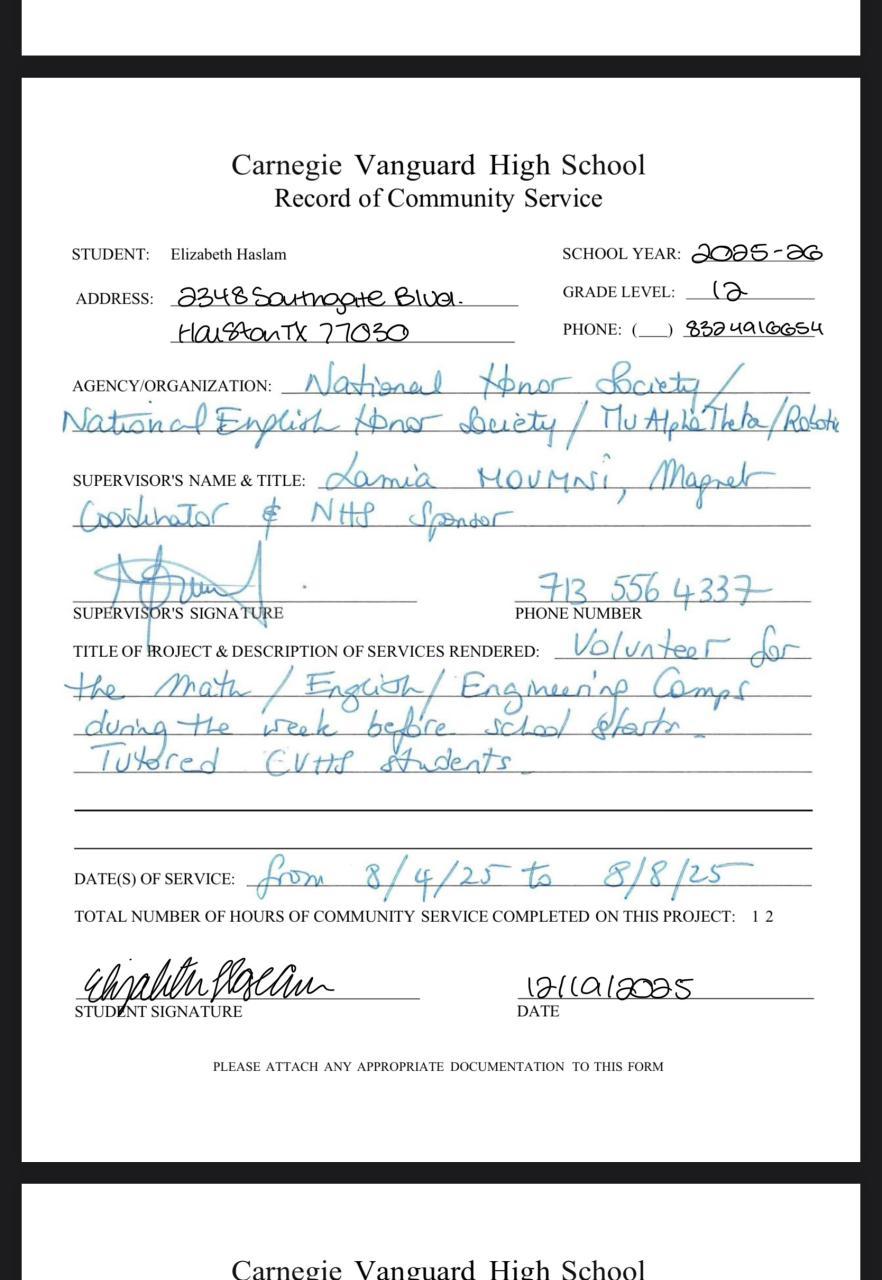 Carnegie Vanguard High School
Record of Community Service
STUDENT: Elizabeth Haslam
SCHOOL YEAR: 2025-26
ADDRESS: 2348 Southgate Blvd.
GRADE LEVEL: 12
Houston TX 77030
PHONE: (___) 8324916654
AGENCY/ORGANIZATION: National Honor Society/
National English Honor Society / Mu Alpha Theta/Robotic
SUPERVISOR'S NAME & TITLE: Lamia MOUMNI, Magnet
Coordinator & NHS Sponsor
713 556 4337
SUPERVISOR'S SIGNATURE PHONE NUMBER
TITLE OF PROJECT & DESCRIPTION OF SERVICES RENDERED: Volunteer for
the Math / English / Engineering Camps
during the week before school starts.
Tutored CVHS students.
DATE(S) OF SERVICE: from 8/4/25 to 8/8/25
TOTAL NUMBER OF HOURS OF COMMUNITY SERVICE COMPLETED ON THIS PROJECT: 1 2
Elizabeth Haslam
STUDENT SIGNATURE DATE
PLEASE ATTACH ANY APPROPRIATE DOCUMENTATION TO THIS FORM
Carnegie Vanguard High School